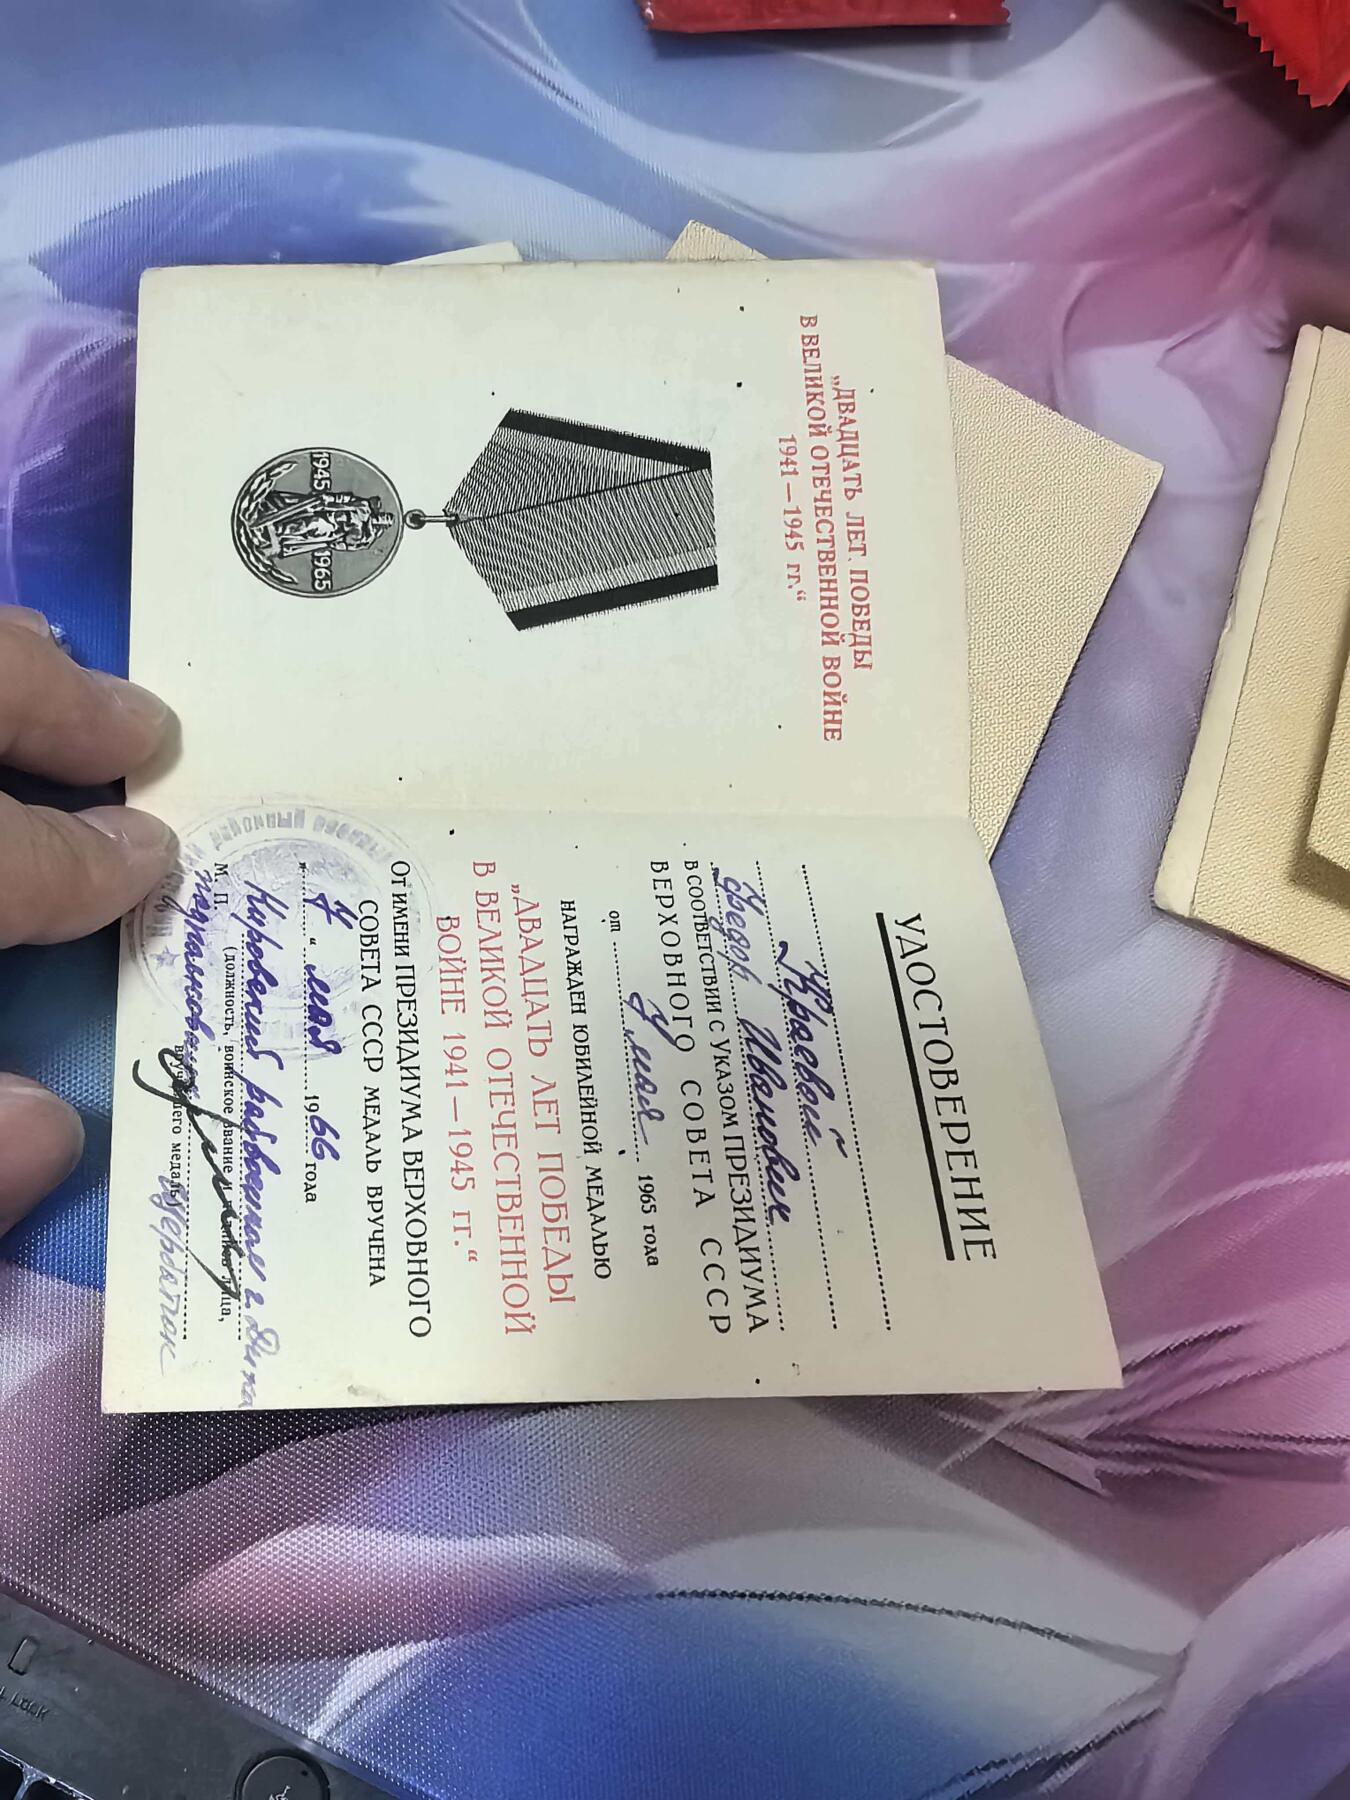 „ДВАДЦАТЬ ЛЕТ ПОБЕДЫ
В ВЕЛИКОЙ ОТЕЧЕСТВЕННОЙ ВОЙНЕ
1941—1945 гг.“
1945 1965
УДОСТОВЕРЕНИЕ
Краевой
Федор Иванович
В СООТВЕТСТВИИ С УКАЗОМ ПРЕЗИДИУМА
ВЕРХОВНОГО СОВЕТА СССР
от 7 мая 1965 года
НАГРАЖДЕН ЮБИЛЕЙНОЙ МЕДАЛЬЮ
„ДВАДЦАТЬ ЛЕТ ПОБЕДЫ
В ВЕЛИКОЙ ОТЕЧЕСТВЕННОЙ
ВОЙНЕ 1941—1945 гг.“
От ИМЕНИ ПРЕЗИДИУМА ВЕРХОВНОГО
СОВЕТА СССР МЕДАЛЬ ВРУЧЕНА
„7“ мая 1966 года
Кировский райвоенком г.
М. П. (должность, воинское звание
вручившего медаль)
LOCK